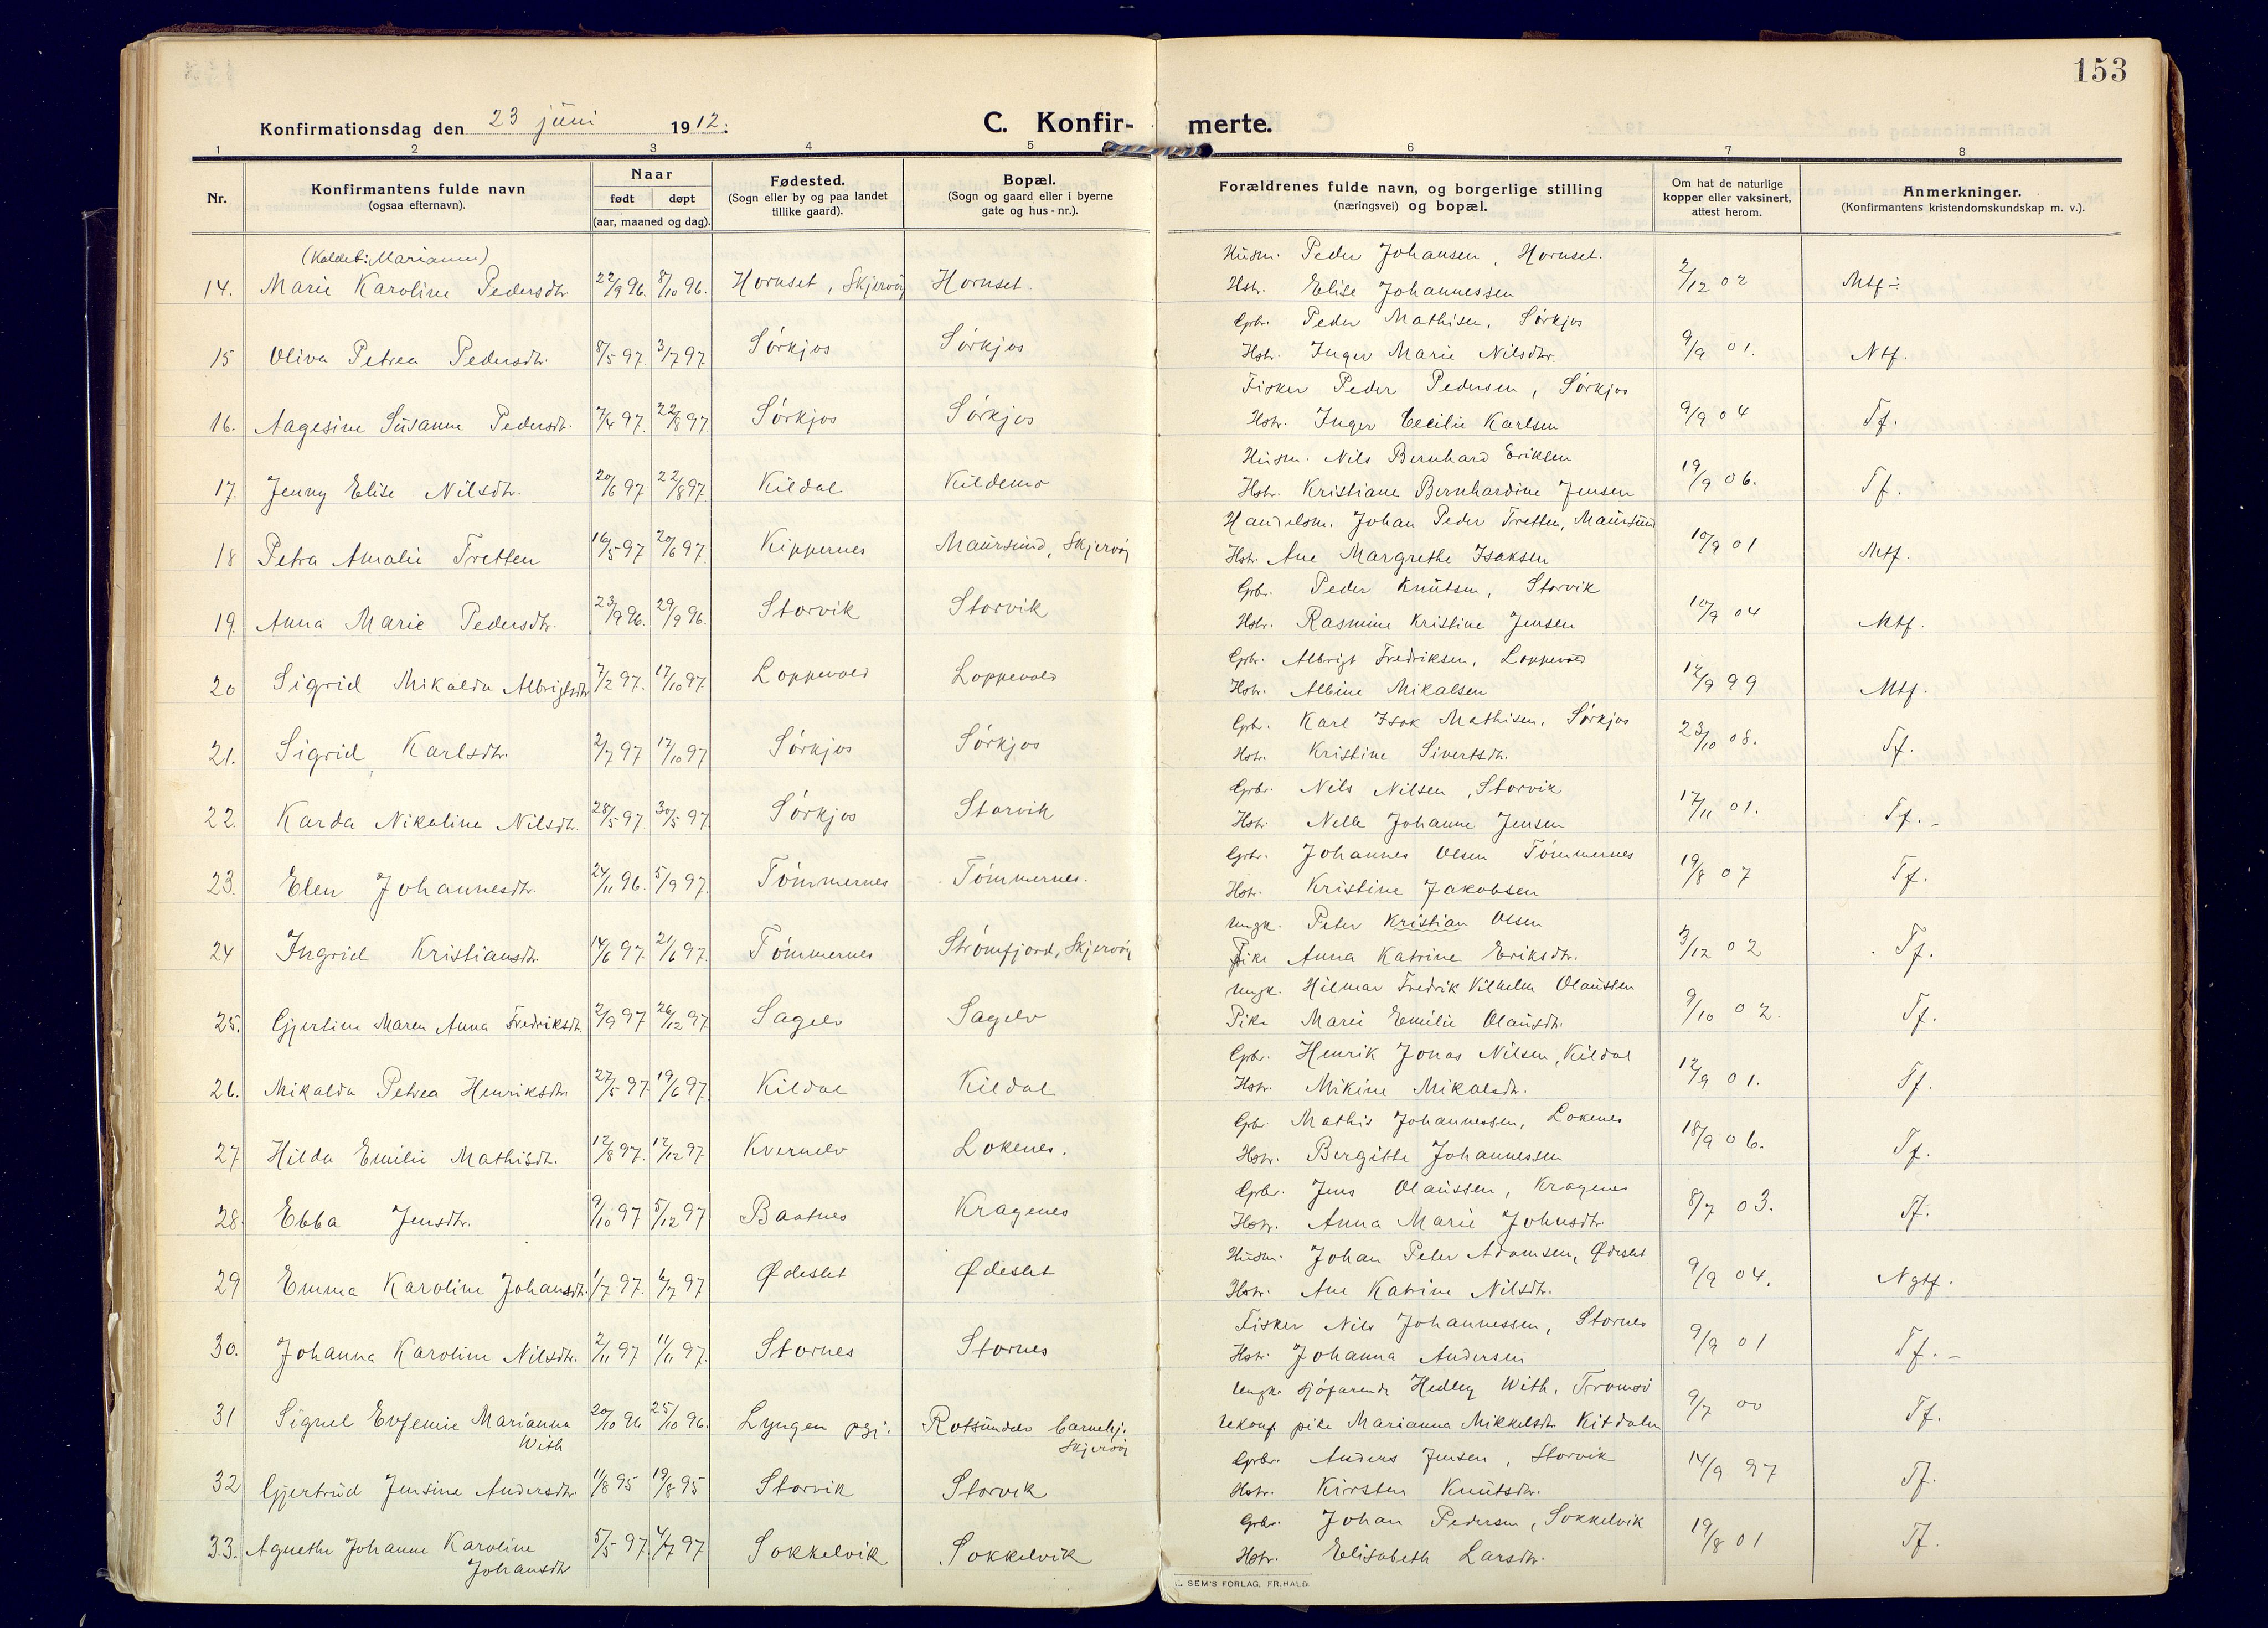 153
Konfirmationsdag den 23 juni 1912:
C. Konfir- merte.
1 2 3 4 5 6 7 8
Nr.
Konfirmantens fulde navn
(ogsaa efternavn).
Naar
født døpt
(aar, maaned og dag).
Fødested.
(Sogn eller by og paa landet
tillike gaard).
Bopæl.
(Sogn og gaard eller i byerne
gate og hus-nr.).
Forældrenes fulde navn, og borgerlige stilling
(næringsvei) og bopæl.
Om hat de naturlige
kopper eller vaksinert,
attest herom.
Anmerkninger.
(Konfirmantens kristendomskundskap m. v.).
(Kaldet: Marianne) Husm. Peder Johansen, Hornset.
14. Marie Karoline Pedersdtr. 22/9 96. 8/10 96. Hornset, Skjervøy Hornset. Hstr. Elise Johannessen 2/12 02 Mtf ÷
Gbr. Peder Mathisen, Sørkjos
15 Oliva Petrea Pedersdtr. 8/5 97. 3/7 97 Sørkjos Sørkjos Hstr. Inger Marie Nilsdtr. 9/9 01. Ntf.
Fisker Peder Pedersen, Sørkjos
16. Aagesine Susanne Pedersdtr. 7/4 97. 22/8 97 Sørkjos Sørkjos Hstr. Inger Cecilie Karlsen 9/9 04 Tf.
Husm. Nils Bernhard Eriksen
17. Jenny Elise Nilsdtr. 20/6 97 22/8 97. Kildal Kildemo Hstr. Kristiane Bernhardine Jensen 19/9 06. Tf.
Handelsm. Johan Peder Tretten, Maursund
18 Petra Amalie Tretten 16/5 97 20/6 97. Kippernes Maursund, Skjervøy Hstr. Ane Margrethe Isaksen 10/9 01 Mtf.
Gbr. Peder Knutsen, Storvik
19. Anna Marie Pedersdtr. 23/9 96. 29/9 96. Storvik Storvik Hstr. Rasmine Kristine Jensen 10/9 04 Mtf.
Gbr. Albrigt Fredriksen, Loppevold
20 Sigrid Mikalda Albrigtsdtr. 7/2 97. 17/10 97. Loppevold Loppevold Hstr. Albine Mikalsen 12/9 99 Mtf.
Gbr. Karl Isak Mathisen, Sørkjos
21. Sigrid Karlsdtr. 2/7 97 17/10 97 Sørkjos Sørkjos Hstr. Kristine Sivertsdtr. 23/10 08. Tf.
Gbr. Nils Nilsen, Storvik
22. Karda Nikoline Nilsdtr. 28/5 97. 30/5 97. Sørkjos Storvik Hstr. Nelle Johanne Jensen 17/11 01. Tf. -
Gbr. Johannes Olsen Tømmernes
23. Elen Johannesdtr. 24/11 96. 5/9 97. Tømmernes Tømmernes. Hstr. Kristine Jakobsen 19/8 07 Tf.
Ungk. Peter Kristian Olsen
24 Ingrid Kristiansdtr. 14/6 97. 21/6 97. Tømmernes Strømfjord, Skjervøy Pike Anna Katrine Eriksdtr. 3/12 02 Tf.
Ungk. Hilmar Fredrik Vilhelm Olaussen
25. Gjertine Maren Anna Fredriksdtr. 2/9 97 26/12 97. Sagelv Sagelv Pike Marie Emilie Olausdtr. 9/10 02. Tf.
Gbr. Henrik Jonas Nilsen, Kildal
26. Mikalda Petrea Henriksdtr. 27/5 97. 19/6 97. Kildal Kildal Hstr. Mikine Mikalsdtr. 12/9 01. Tf.
Gbr. Mathis Johannessen, Lokenes
27 Hilda Emilie Mathisdtr. 12/8 97. 12/12 97 Kvernelv Lokenes. Hstr. Bergitte Johannessen 18/9 06. Tf.
Gbr. Jens Olaussen, Kragenes
28. Ebba Jensdtr. 9/10 97 5/12 97 Baatnes Kragenes Hstr. Anna Marie Johnsdtr. 8/7 03. Tf.
Husm. Johan Peter Adamsen, Ødeslet
29 Emma Karoline Johansdtr. 1/7 97. 6/7 97 Ødeslet Ødeslet Hstr. Ane Katrine Nilsdtr. 9/9 04. Ngtf.
Fisker Nils Johannessen, Stornes
30. Johanna Karoline Nilsdtr. 2/11 97 11/11 97. Stornes Stornes Hstr. Johanna Andersen 9/9 01 Tf. -
Ungk. sjøfarende Hedley With, Tromsø
31 Signel Evfemie Marianna 20/10 96 25/10 96. Lyngen pgj. Rotsundelv barnehj. Ukonf. pike Marianna Mikkelsdtr. Kitdalen 9/7 00 Tf.
With Skjervøy
Gbr. Anders Jensen, Storvik
32 Gjertrud Jensine Andersdtr. 11/8 95 19/8 95 Storvik Storvik Hstr. Kirsten Knutsdtr. 14/9 97 Tf.
Gbr. Johan Pedersen, Sokkelvik
33. Agnethe Johanne Karoline 5/5 97. 4/7 97 Sokkelvik Sokkelvik Hstr. Elisabeth Larsdtr. 19/8 01 Tf.
Johansdtr
SEM'S FORLAG, FR.HALD.